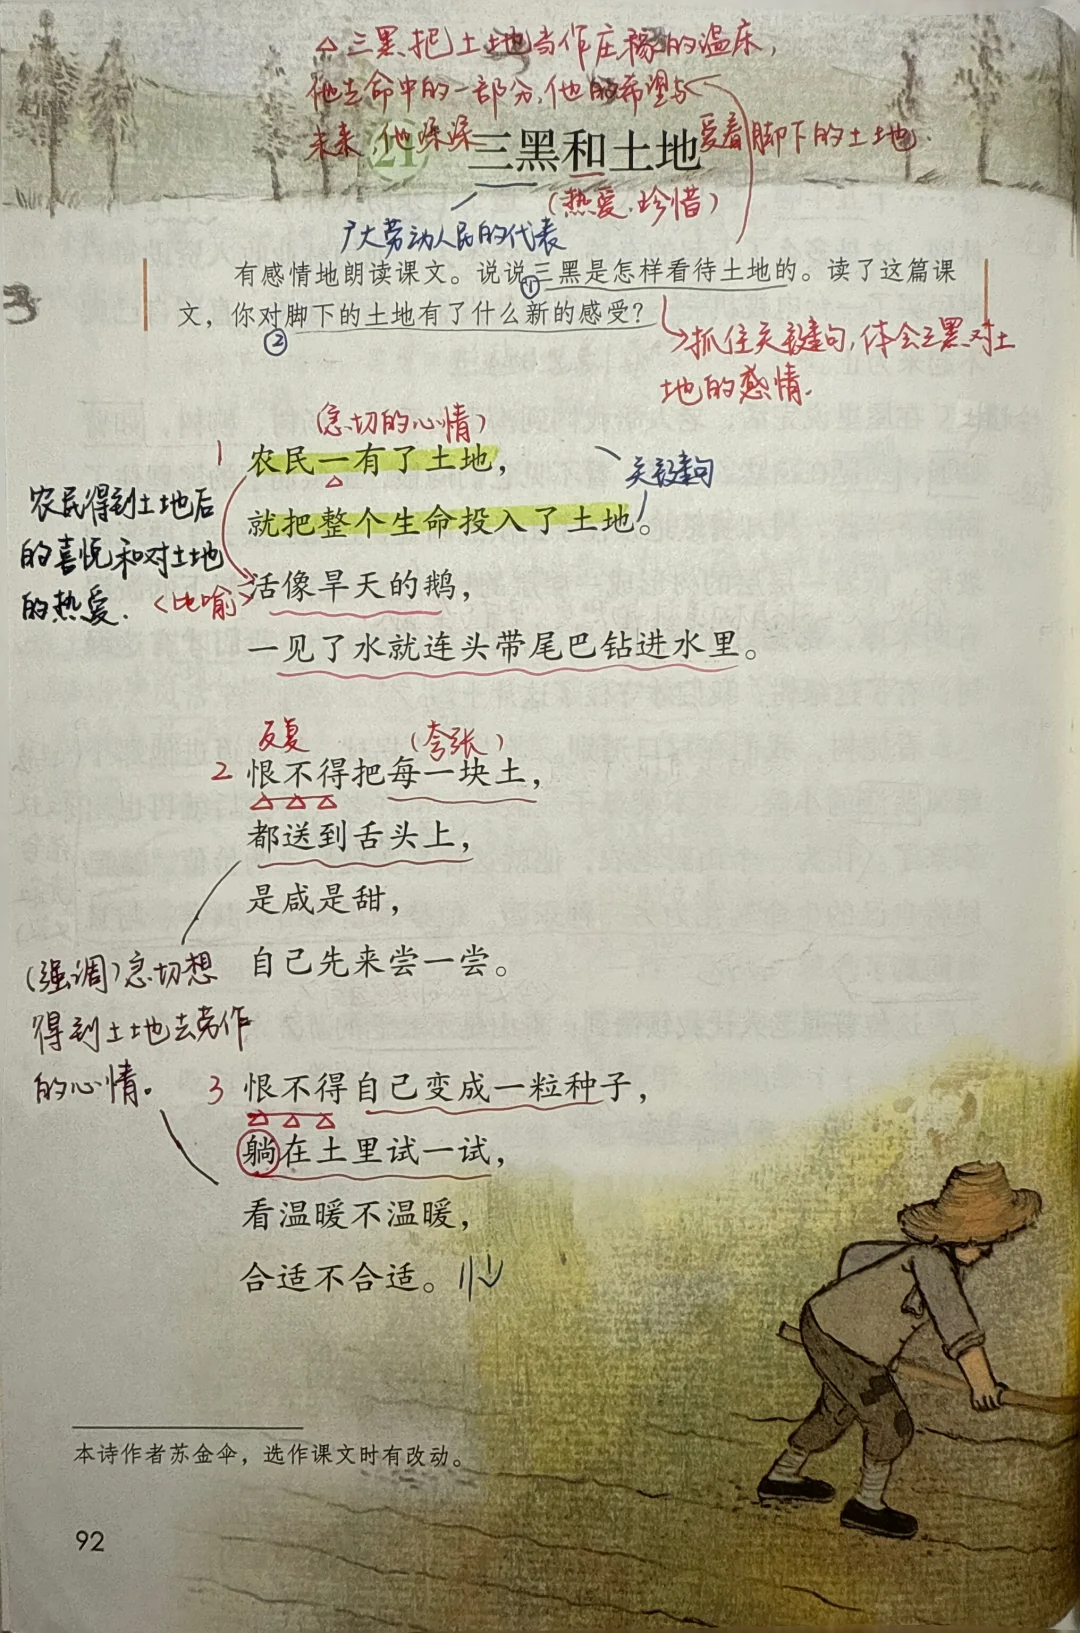 △三黑把土地当作庄稼的温床，
他生命中的一部分，他的希望与
未来，他深深爱着脚下的土地．
21 三黑和土地
（热爱．珍惜）
广大劳动人民的代表
有感情地朗读课文。说说三黑是怎样看待土地的。读了这篇课
①
文，你对脚下的土地有了什么新的感受？
②
抓住关键句，体会三黑对土
地的感情．
（急切的心情）
1 农民一有了土地，
关键句
就把整个生命投入了土地。
活像旱天的鹅，
一见了水就连头带尾巴钻进水里。
农民得到土地后
的喜悦和对土地
的热爱．
<比喻>
反复 （夸张）
2 恨不得把每一块土，
都送到舌头上，
是咸是甜，
自己先来尝一尝。
（强调）急切想
得到土地去劳作
的心情。
3 恨不得自己变成一粒种子，
躺在土里试一试，
看温暖不温暖，
合适不合适。
本诗作者苏金伞，选作课文时有改动。
92